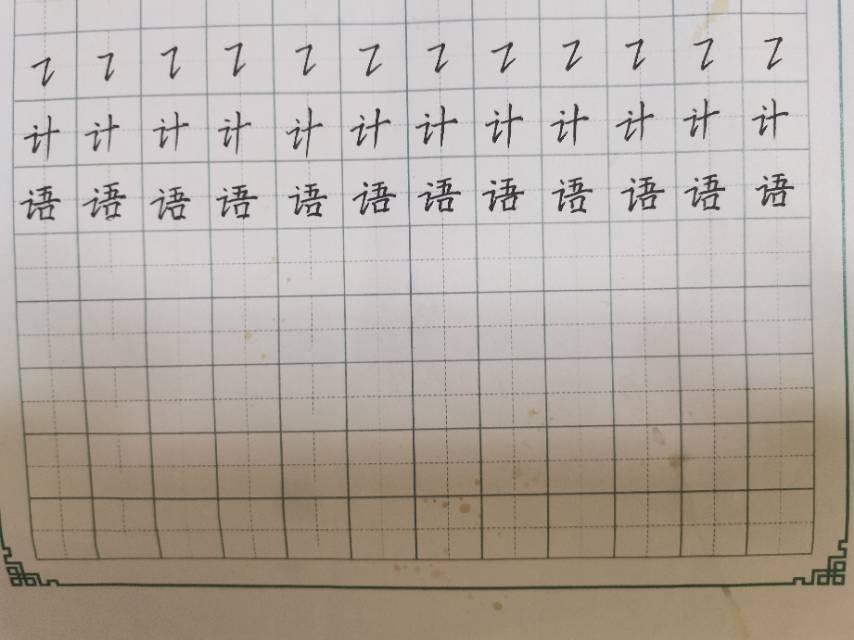 ㇊ ㇊ ㇊ ㇊ ㇊ ㇊ ㇊ ㇊ ㇊ ㇊ ㇊ ㇊
计 计 计 计 计 计 计 计 计 计 计 计
语 语 语 语 语 语 语 语 语 语 语 语